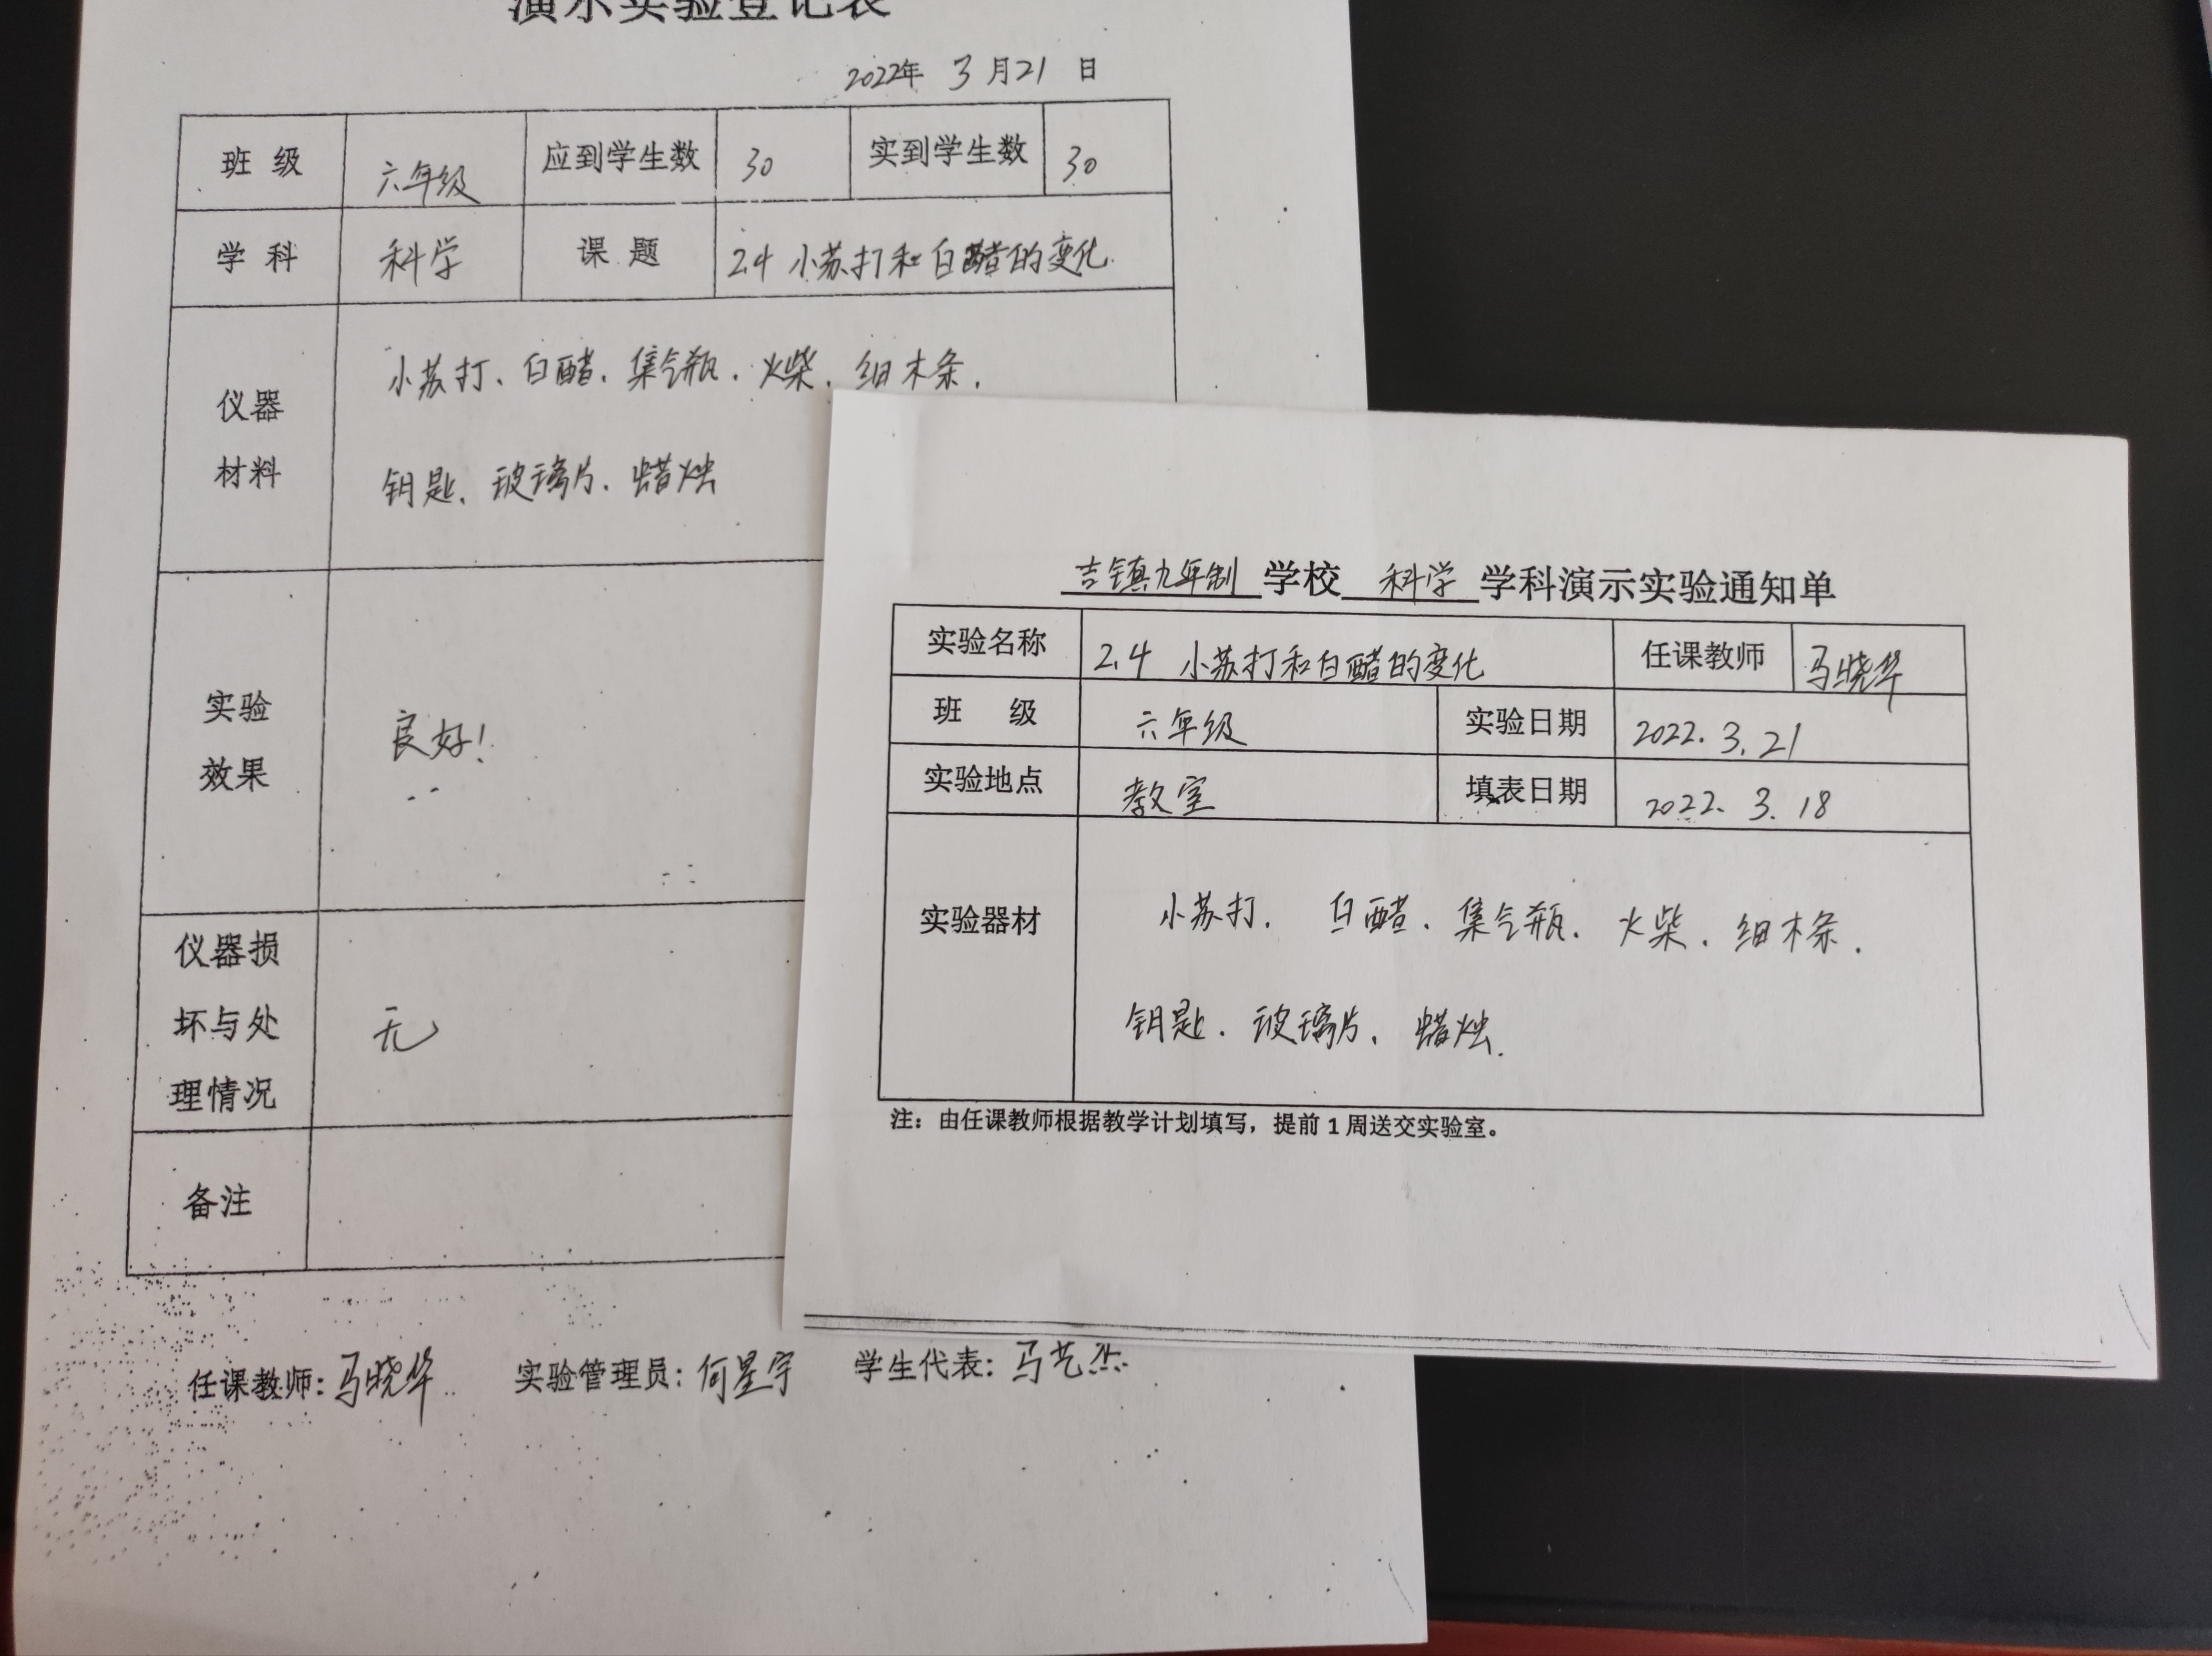 演示实验登记表
2022年 3月21日
班 级 六年级 应到学生数 30 实到学生数 30
学 科 科学 课 题 2.4 小苏打和白醋的变化
仪器
材料
小苏打、白醋、集气瓶、火柴、细木条、
钥匙、玻璃片、蜡烛
实验
效果
良好！
仪器损
坏与处
理情况
无
备注
任课教师：马晓华 实验管理员：何星宇 学生代表：马艺杰
吉镇九年制 学校 科学 学科演示实验通知单
实验名称 2.4 小苏打和白醋的变化 任课教师 马晓华
班 级 六年级 实验日期 2022.3.21
实验地点 教室 填表日期 2022.3.18
实验器材
小苏打、白醋、集气瓶、火柴、细木条、
钥匙、玻璃片、蜡烛.
注：由任课教师根据教学计划填写，提前1周送交实验室。